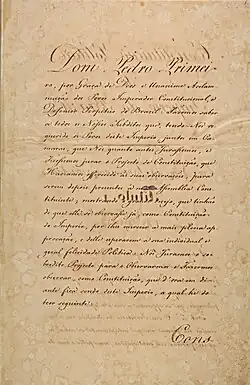 Dom Pedro Primei-
ro, por Graça de Deos, e Unanime Acclama-
mação dos Povos Imperador Constitucional, e
Defensor Perpetuo do Brasil: Fazemos saber
a todos os Nossos Subditos que, tendo-Nos re-
querido os Povos deste Imperio, juntos em
Camaras, que Nós quanto antes Jurassemos, e
Fizessemos jurar o Projecto de Constituição, que
Haviamos offerecido ás suas observações, para
serem depois presentes á Assembléa Cons-
tituinte; mostrando o grande desejo, que tinhão
de que elle se observasse já, como Constituição
do Imperio, por lhes merecer a mais plena ap-
provação, e delle esperarem a sua individual, e
geral felicidade Politica: Nós Juramos o so-
bredito Projecto para o Observarmos, e Fazermos
observar, como Constituição, que d'ora em di-
ante fica sendo deste Imperio, a qual he do
teor seguinte.
Cons